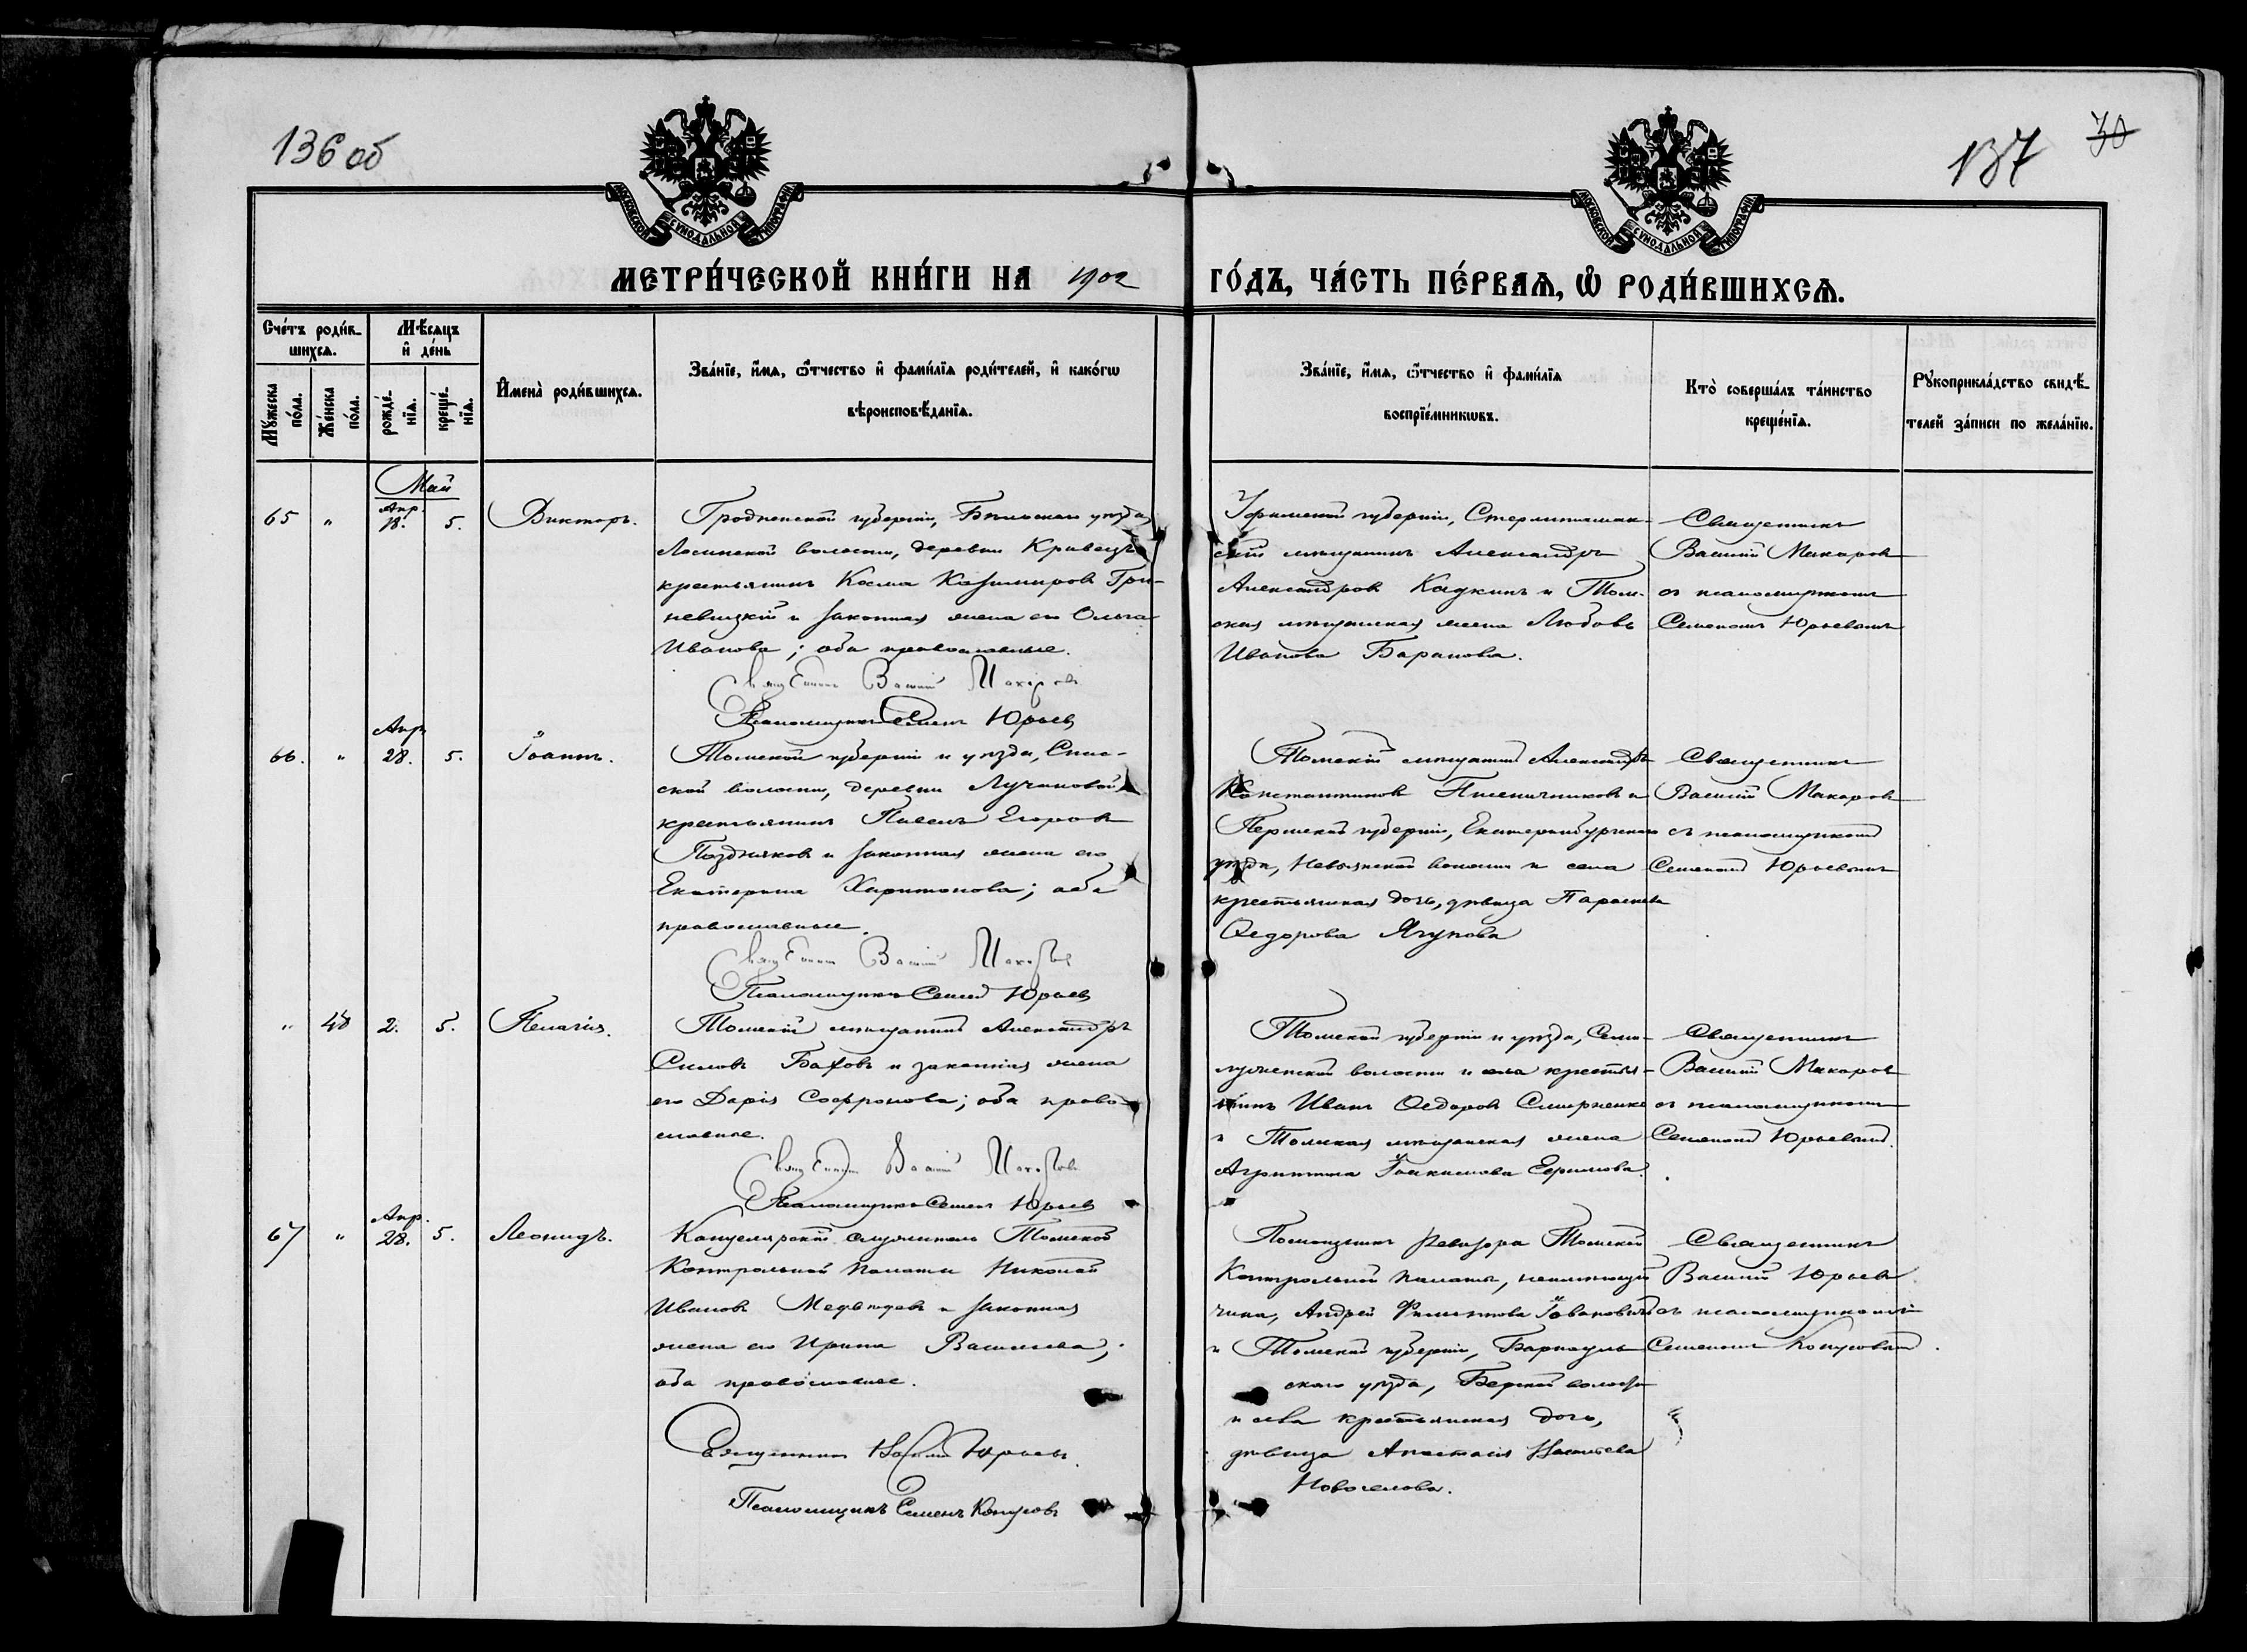 136 об
137
30
МОСКОВСКОЙ СѴНОДАЛЬНОЙ ТИПОГРАФІИ
МОСКОВСКОЙ СѴНОДАЛЬНОЙ ТИПОГРАФІИ
МЕТРИ́ЧЕСКОЙ КНИ́ГИ НА 1902 ГО́ДЪ, ЧА́СТЬ ПЕ́РВАѦ, Ѡ҆ РОДИ́ВШИХСѦ.
Сче́тъ роди́в-
шихсѧ.
Мꙋ́жеска по́ла.
Же́нска по́ла.
Мѣ́сѧцъ и҆ де́нь
рожде́-
нїѧ.
креще́-
нїѧ.
И҆мена̀ роди́вшихсѧ.
Зва́нїе, и҆́мѧ, ѻ҆́тчество и҆ фами́лїѧ роди́телей, и҆ како́гѡ
вѣроисповѣ́данїѧ.
Зва́нїе, и҆́мѧ, ѻ҆́тчество и҆ фами́лїѧ
воспрїе́мникѡвъ.
Кто̀ соверша́лъ та́инство
креще́нїѧ.
Рꙋкоприкла́дство свидѣ́-
телей за́писи по жела́нїю.
Май
65 " Апр. 18. 5. Викторъ.
Гродненской губерніи, Бѣльскаго уѣзда,
Лосинской волости, деревни Кривецъ
крестьянинъ Косма Казимировъ Гри-
невицкій и законная жена его Ольга
Иванова; оба православные.
Священникъ Василій Макаровъ
Псаломщикъ Семенъ Юрьевъ
Уфимской губерніи, Стерлитамак-
скій мѣщанинъ Александръ
Александровъ Кадкинъ и Том-
ская мѣщанская жена Любовь
Иванова Баранова.
Священникъ
Василій Макаровъ
съ псаломщикомъ
Семеномъ Юрьевымъ
66. " Апр. 28. 5. Іоаннъ.
Томской губерніи и уѣзда, Спас-
ской волости, деревни Лучановой
крестьянинъ Павелъ Егоровъ
Поздняковъ и законная жена его
Екатерина Харитонова; оба
православные.
Священникъ Василій Макаровъ
Псаломщикъ Семенъ Юрьевъ
Томскій мѣщанинъ Александръ
Константиновъ Пшеничниковъ и
Пермской губерніи, Екатеринбургскаго
уѣзда, Невьянской волости и села
крестьянская дочь, дѣвица Параскева
Ѳедорова Ягунова
Священникъ
Василій Макаровъ
съ псаломщикомъ
Семеномъ Юрьевымъ
" 48 2. 5. Пелагія.
Томскій мѣщанинъ Александръ
Силовъ Баховъ и законная жена
его Дарія Софронова; оба право-
славные.
Священникъ Василій Макаровъ
Псаломщикъ Семенъ Юрьевъ
Томской губерніи и уѣзда, Семи-
лужской волости и села крестья-
нинъ Иванъ Ѳедоровъ Смирненко
и Томская мѣщанская жена
Агриппина Іоакимова Ефимова.
Священникъ
Василій Макаровъ
съ псаломщикомъ
Семеномъ Юрьевымъ.
67 " Апр. 28. 5. Леонидъ.
Канцелярскій служитель Томской
Контрольной Палаты Николай
Ивановъ Медвѣдевъ и законная
жена его Ирина Васильева;
оба православные.
Священникъ Василій Юрьевъ.
Псаломщикъ Семенъ Копусовъ
Помощникъ Ревизора Томской
Контрольной палаты, неимѣющій
чина, Андрей Іовановичъ
и Томской губерніи, Барнауль-
скаго уѣзда, Бердской волости
и села крестьянская дочь,
дѣвица Анастасія Васильева
Новоселова.
Священникъ
Василій Юрьевъ
съ псаломщикомъ
Семеномъ Копусовымъ.